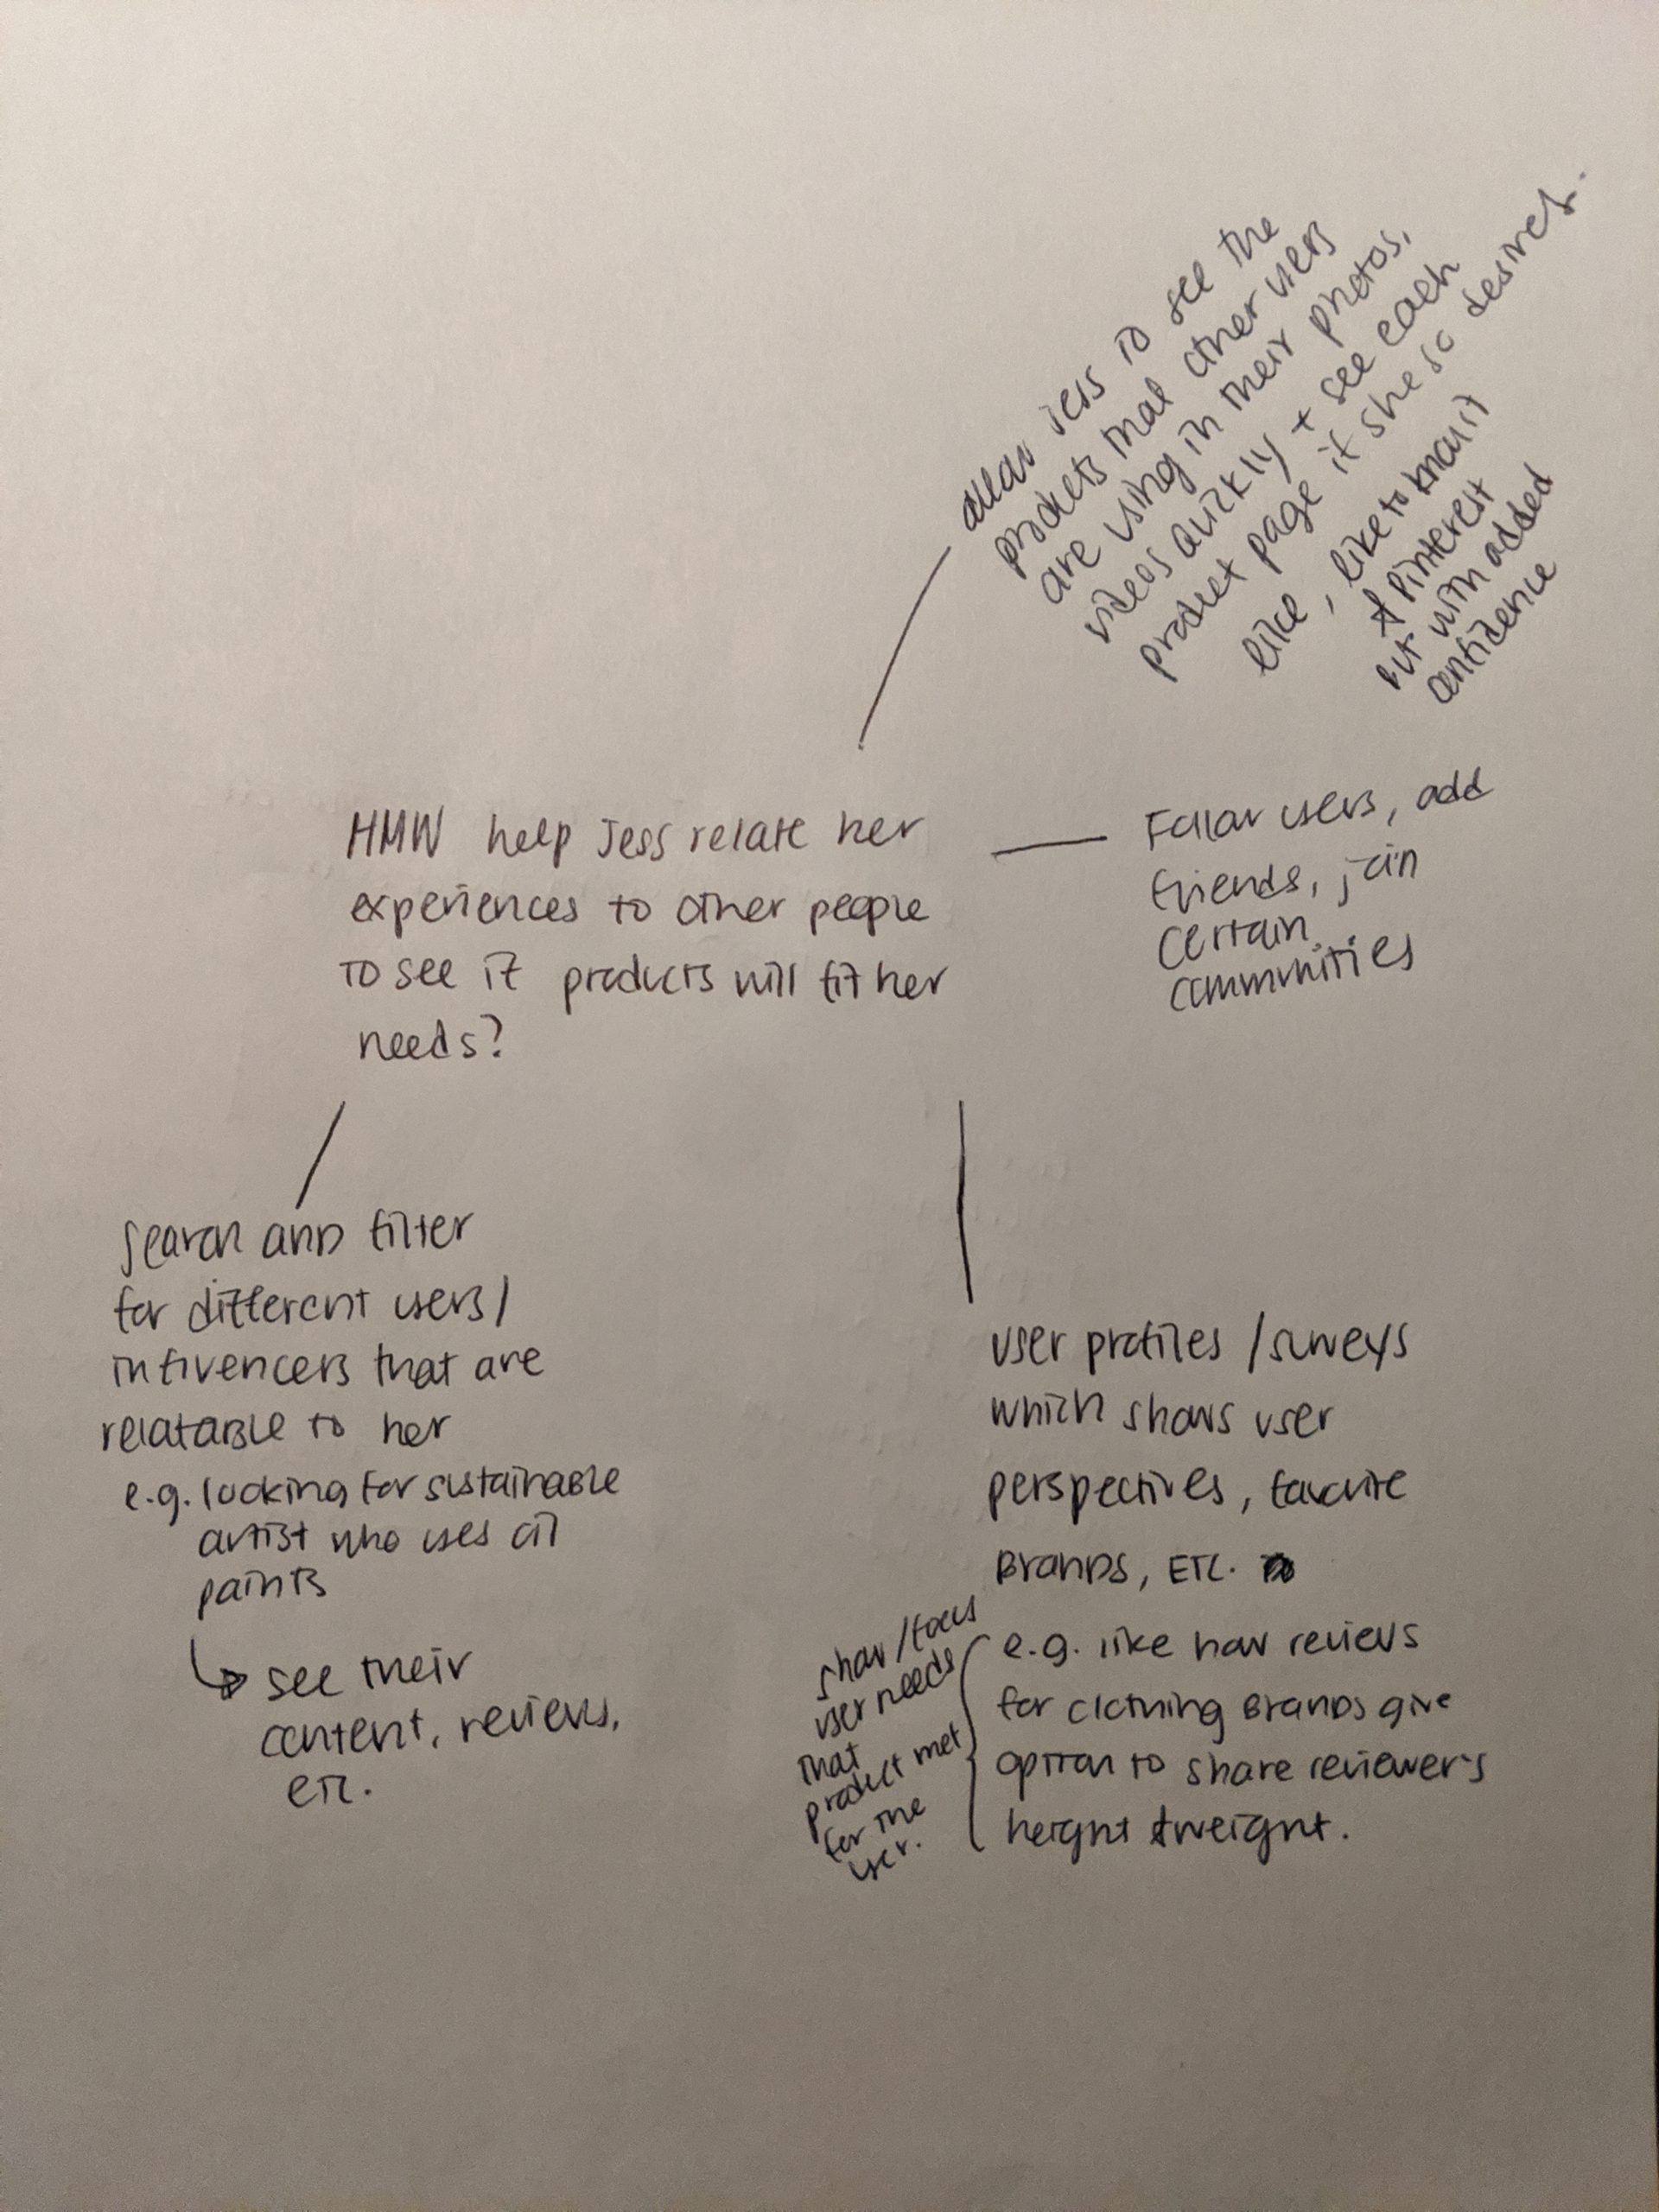 allow users to see the
products that other users
are using in their photos,
videos quickly + see each
product page if she so desires.
like, like to know it
& Pinterest
but with added
confidence
HMW help Jess relate her
experiences to other people
to see if products will fit her
needs?
Follow users, add
friends, join
certain
communities
search and filter
for different users/
influencers that are
relatable to her
e.g. looking for sustainable
artist who uses oil
paints
see their
content, reviews,
etc.
user profiles / surveys
which shows user
perspectives, favorite
Brands, ETC.
show / focus
user needs
that
product met
for the
user.
e.g. like how reviews
for clothing Brands give
option to share reviewer's
height & weight.